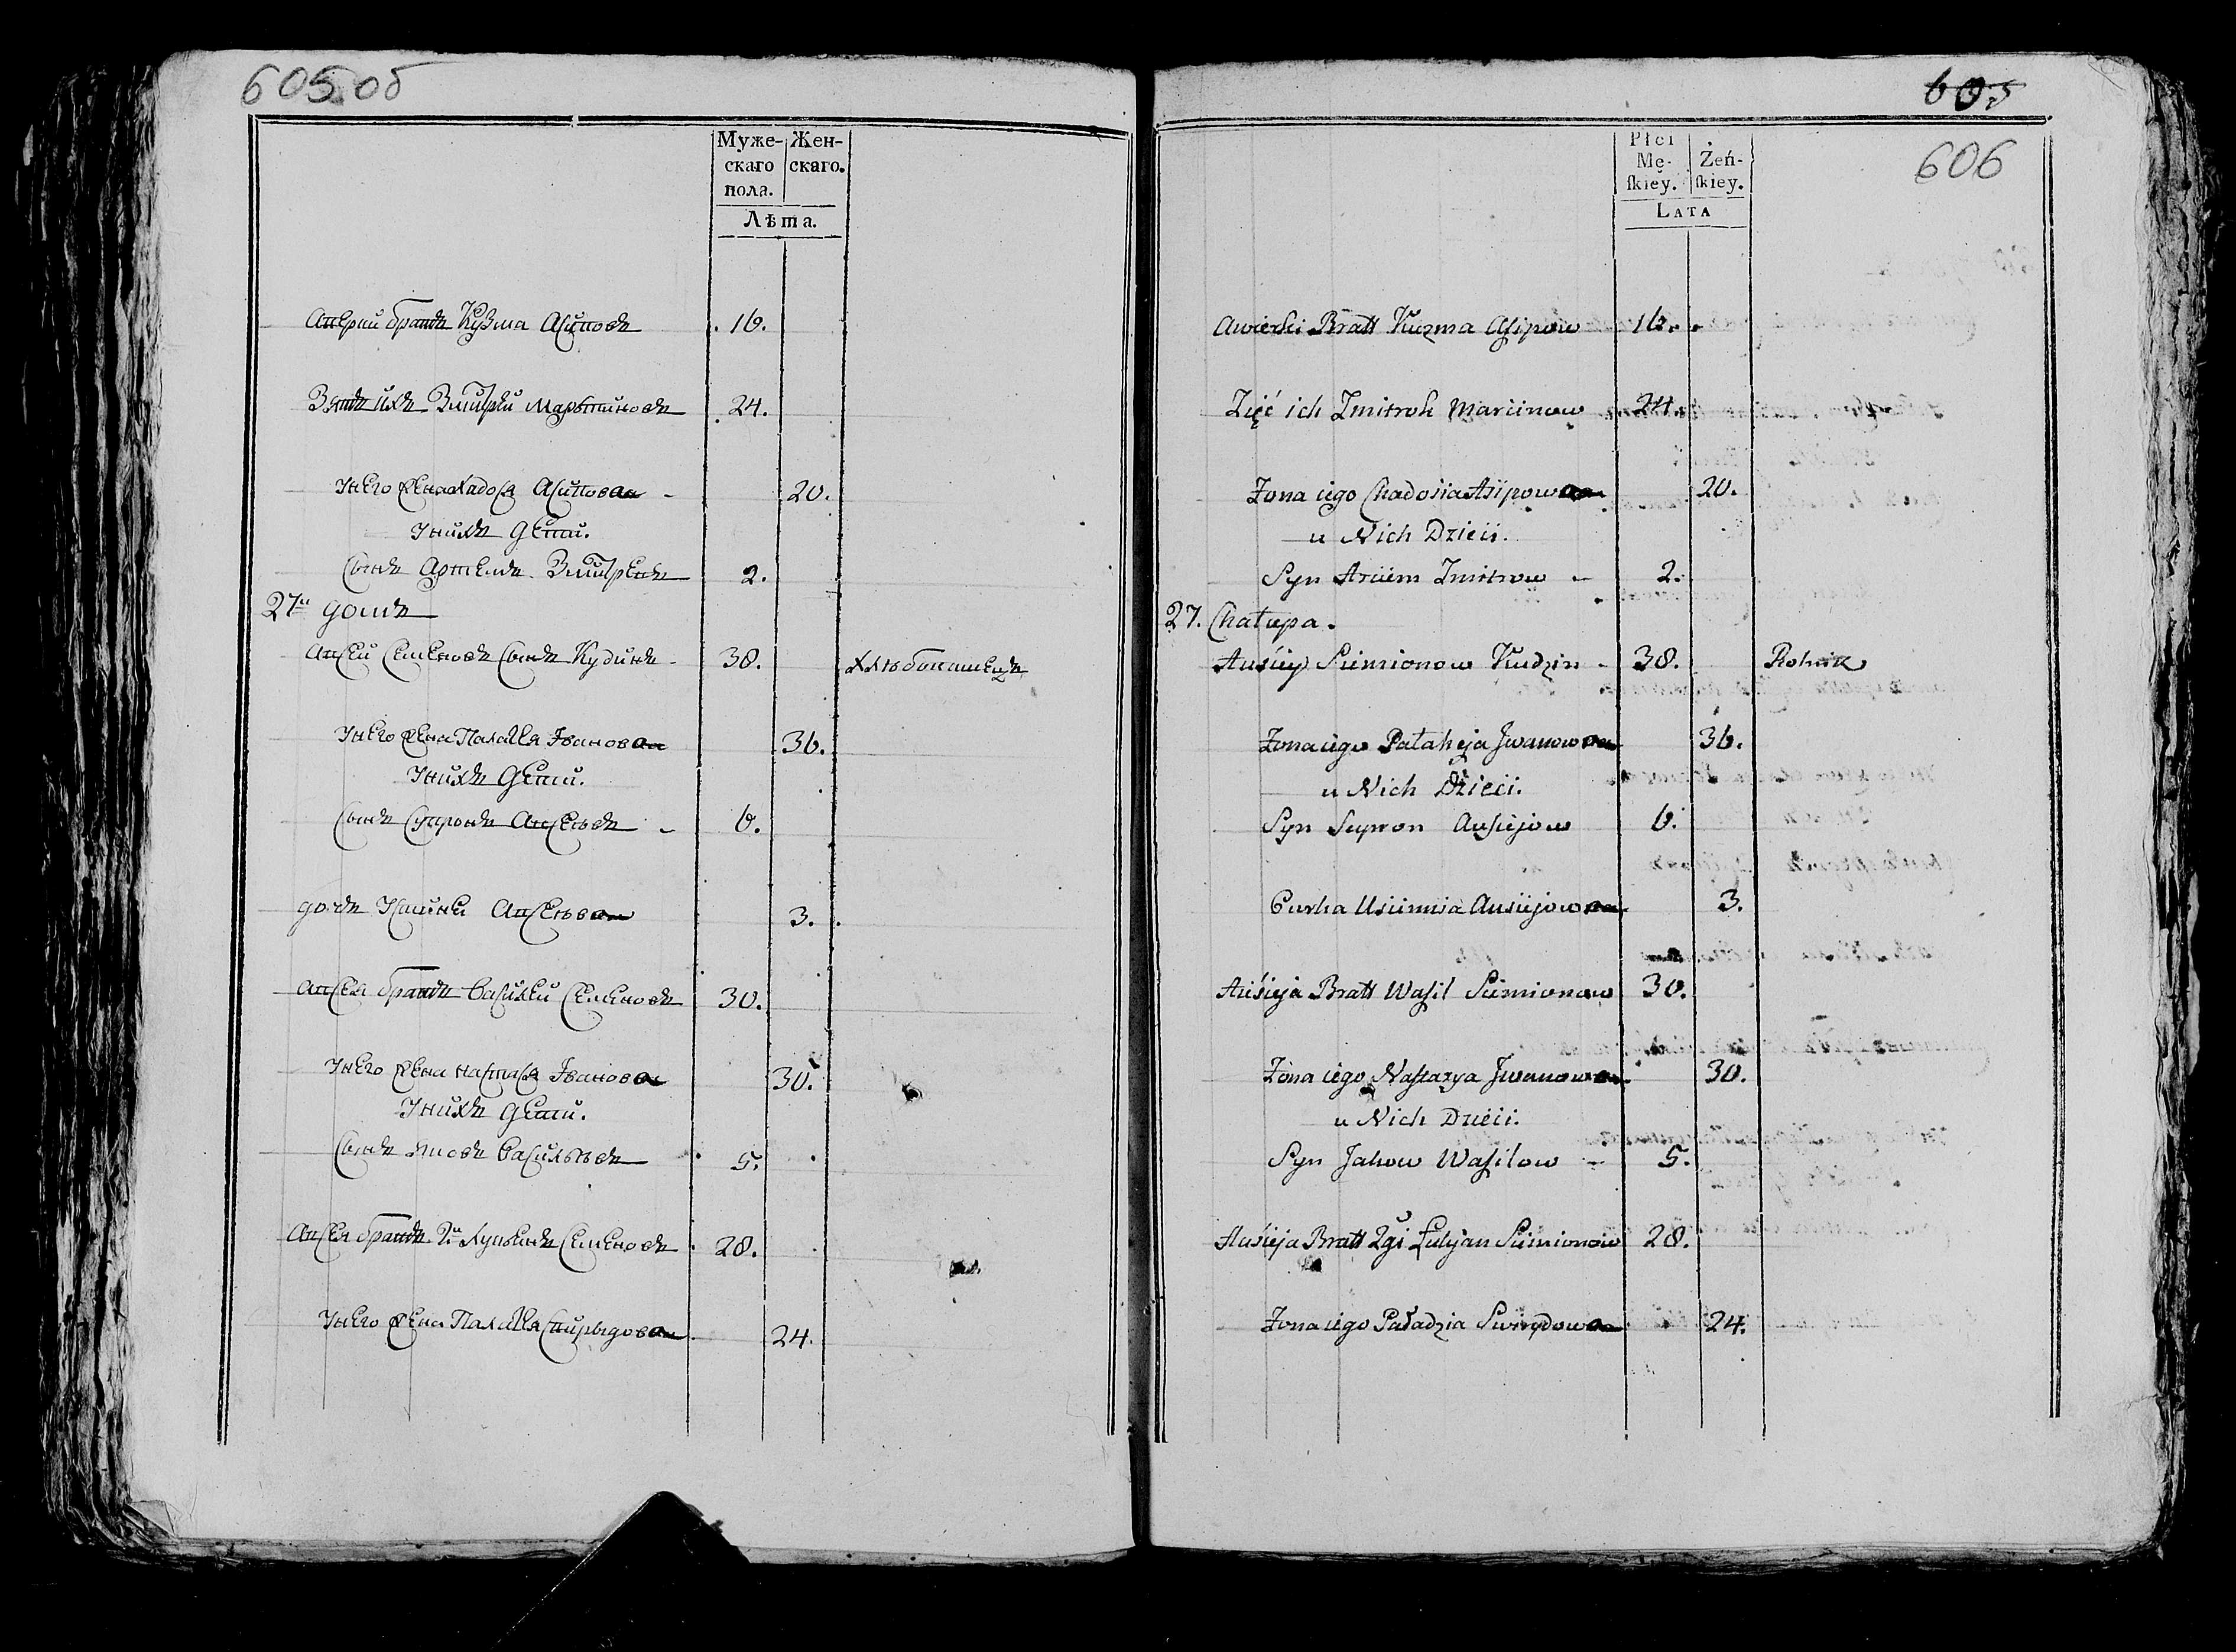 605 об
Муже-
скаго
пола.
Жен-
скаго.
Лѣта.
братъ Кузма Асиповъ 16.
Зять ихъ Змитрокъ Мартиновъ 24.
У него жена Хадося Асипова 20.
У нихъ дети.
Сынъ Артемъ 2.
27й домъ
Авсей Семеновъ сынъ Кудинъ 38. Хлѣбопашецъ
У него жена Палагея Іванова 36.
У нихъ дети.
Сынъ Супронъ Авсеевъ 6.
дочь Авсеева 3.
Авсея братъ Василей Семеновъ 30.
У него жена Настася Іванова 30.
У нихъ дети.
Сынъ Яковъ Васильевъ 5.
Авсея братъ 2й Лукьянъ Семеновъ 28.
У него жена Палагея Спирыдова 24.
605
606
Płci
Mę-
ſkiey.
Żeń-
ſkiey.
LATA
Bratt Kuzma Asipow 16.
Zięć ich Zmitrok Marcinow 24.
Żona iego Chadosia Asipowa 20.
u Nich Dzieci.
Syn Arciem Zmitrow 2.
27. Chałupa.
Ausiey Siemionow Kudzin 38. Rolnik
Żona iego Pałaheja Jwanowa 36.
u Nich Dzieci.
Syn Supron Ausiejow 6.
Curka Usiimia Ausiejowa 3.
Ausieja Bratt Wasil Siemionow 30.
Żona iego Nastazya Jwanowa 30.
u Nich Dzieci.
Syn Jakow Wasilow 5.
Ausieja Bratt 2gi Łukjan Siemionow 28.
Żona iego Paładzia Swirydowa 24.